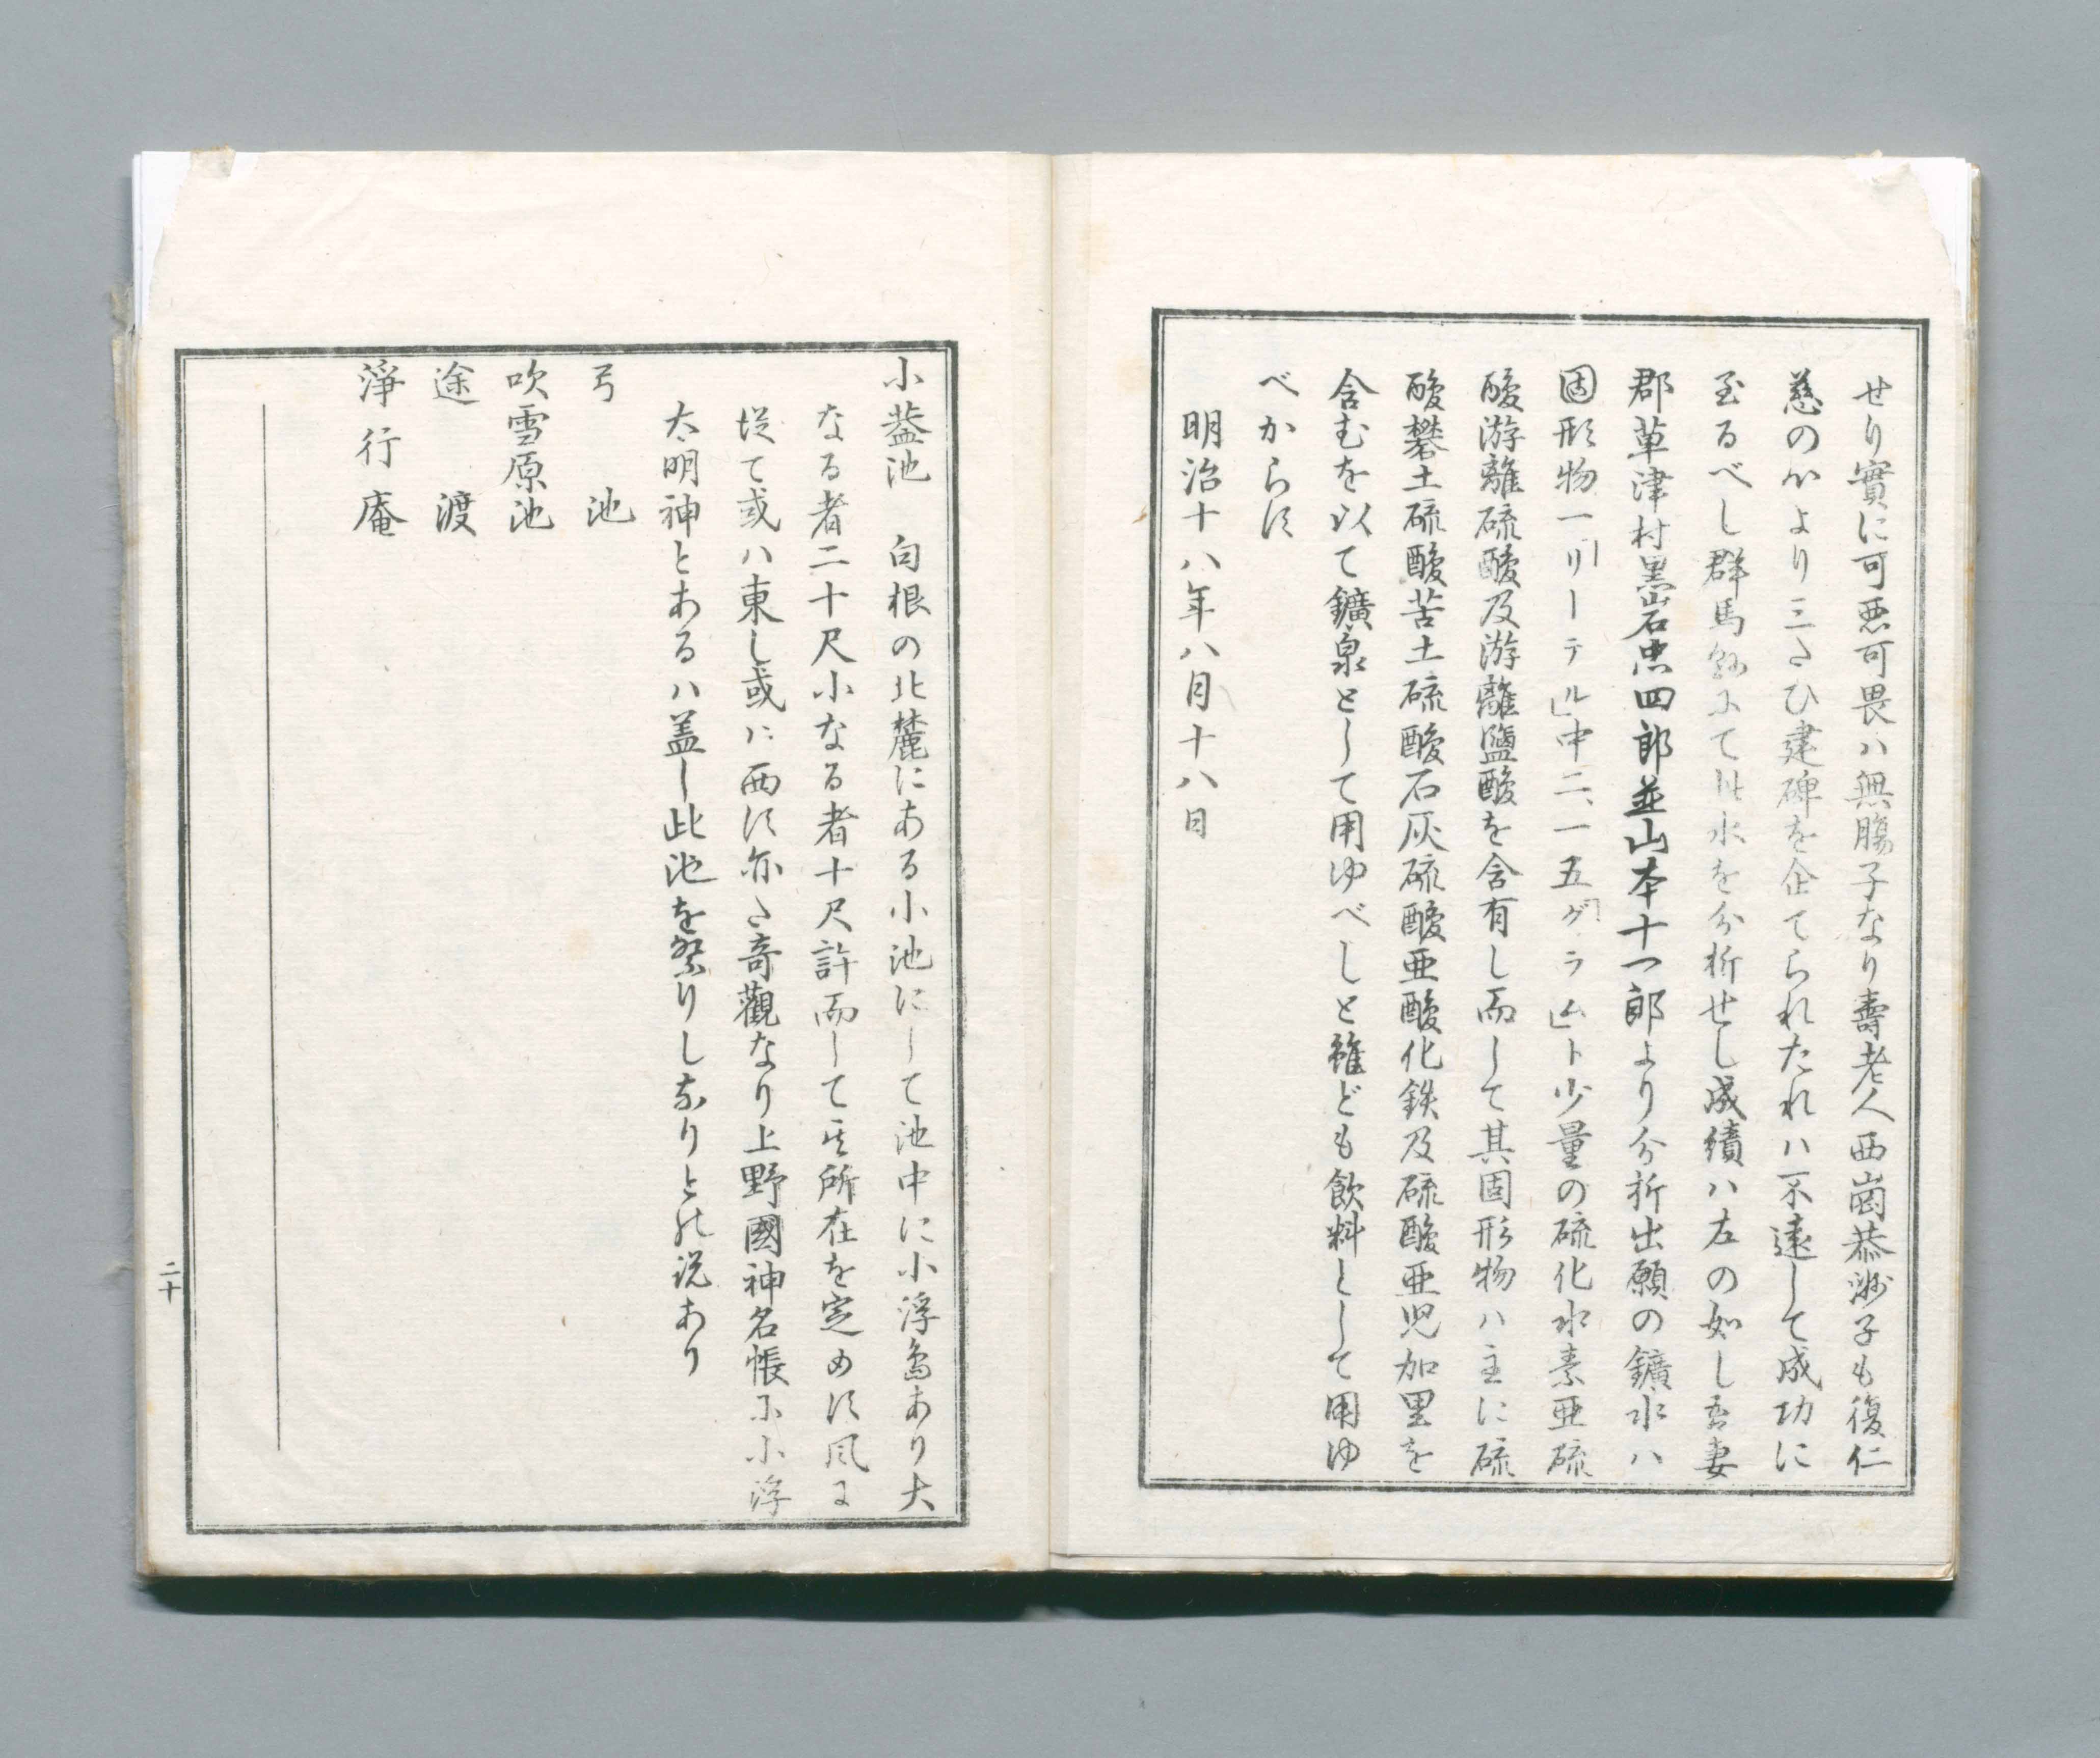 せり實に可悪可畏ハ無腸子なり壽老人西崗恭洲子も復仁
慈の心より三たひ建碑を企てられたれハ不遠して成功に
至るべし群馬縣にて此水を分析せし成績ハ左の如し吾妻
郡草津村黒岩忠四郎並山本十一郎より分析出願の鑛水ハ
固形物一「リーテル」中二、一五「グラム」ト少量の硫化水素亜硫
酸游離硫酸及游離鹽酸を含有し而して其固形物ハ主に硫
酸礬土硫酸苦土硫酸石灰硫酸亜酸化鉄及硫酸亜児加里を
含むを以て鑛泉として用ゆべしと雖ども飲料として用ゆ
べからす
明治十八年八月十八日
小葢池　白根の北麓にある小池にして池中に小浮島あり大
なる者二十尺小なる者十尺許而して其所在を定めす風に
従て或ハ東し或ハ西す亦た奇觀なり上野國神名帳に小浮
大明神とあるハ蓋し此池を祭りしなりとの説あり
弓　池
吹雪原池
途　渡
淨行庵
二十